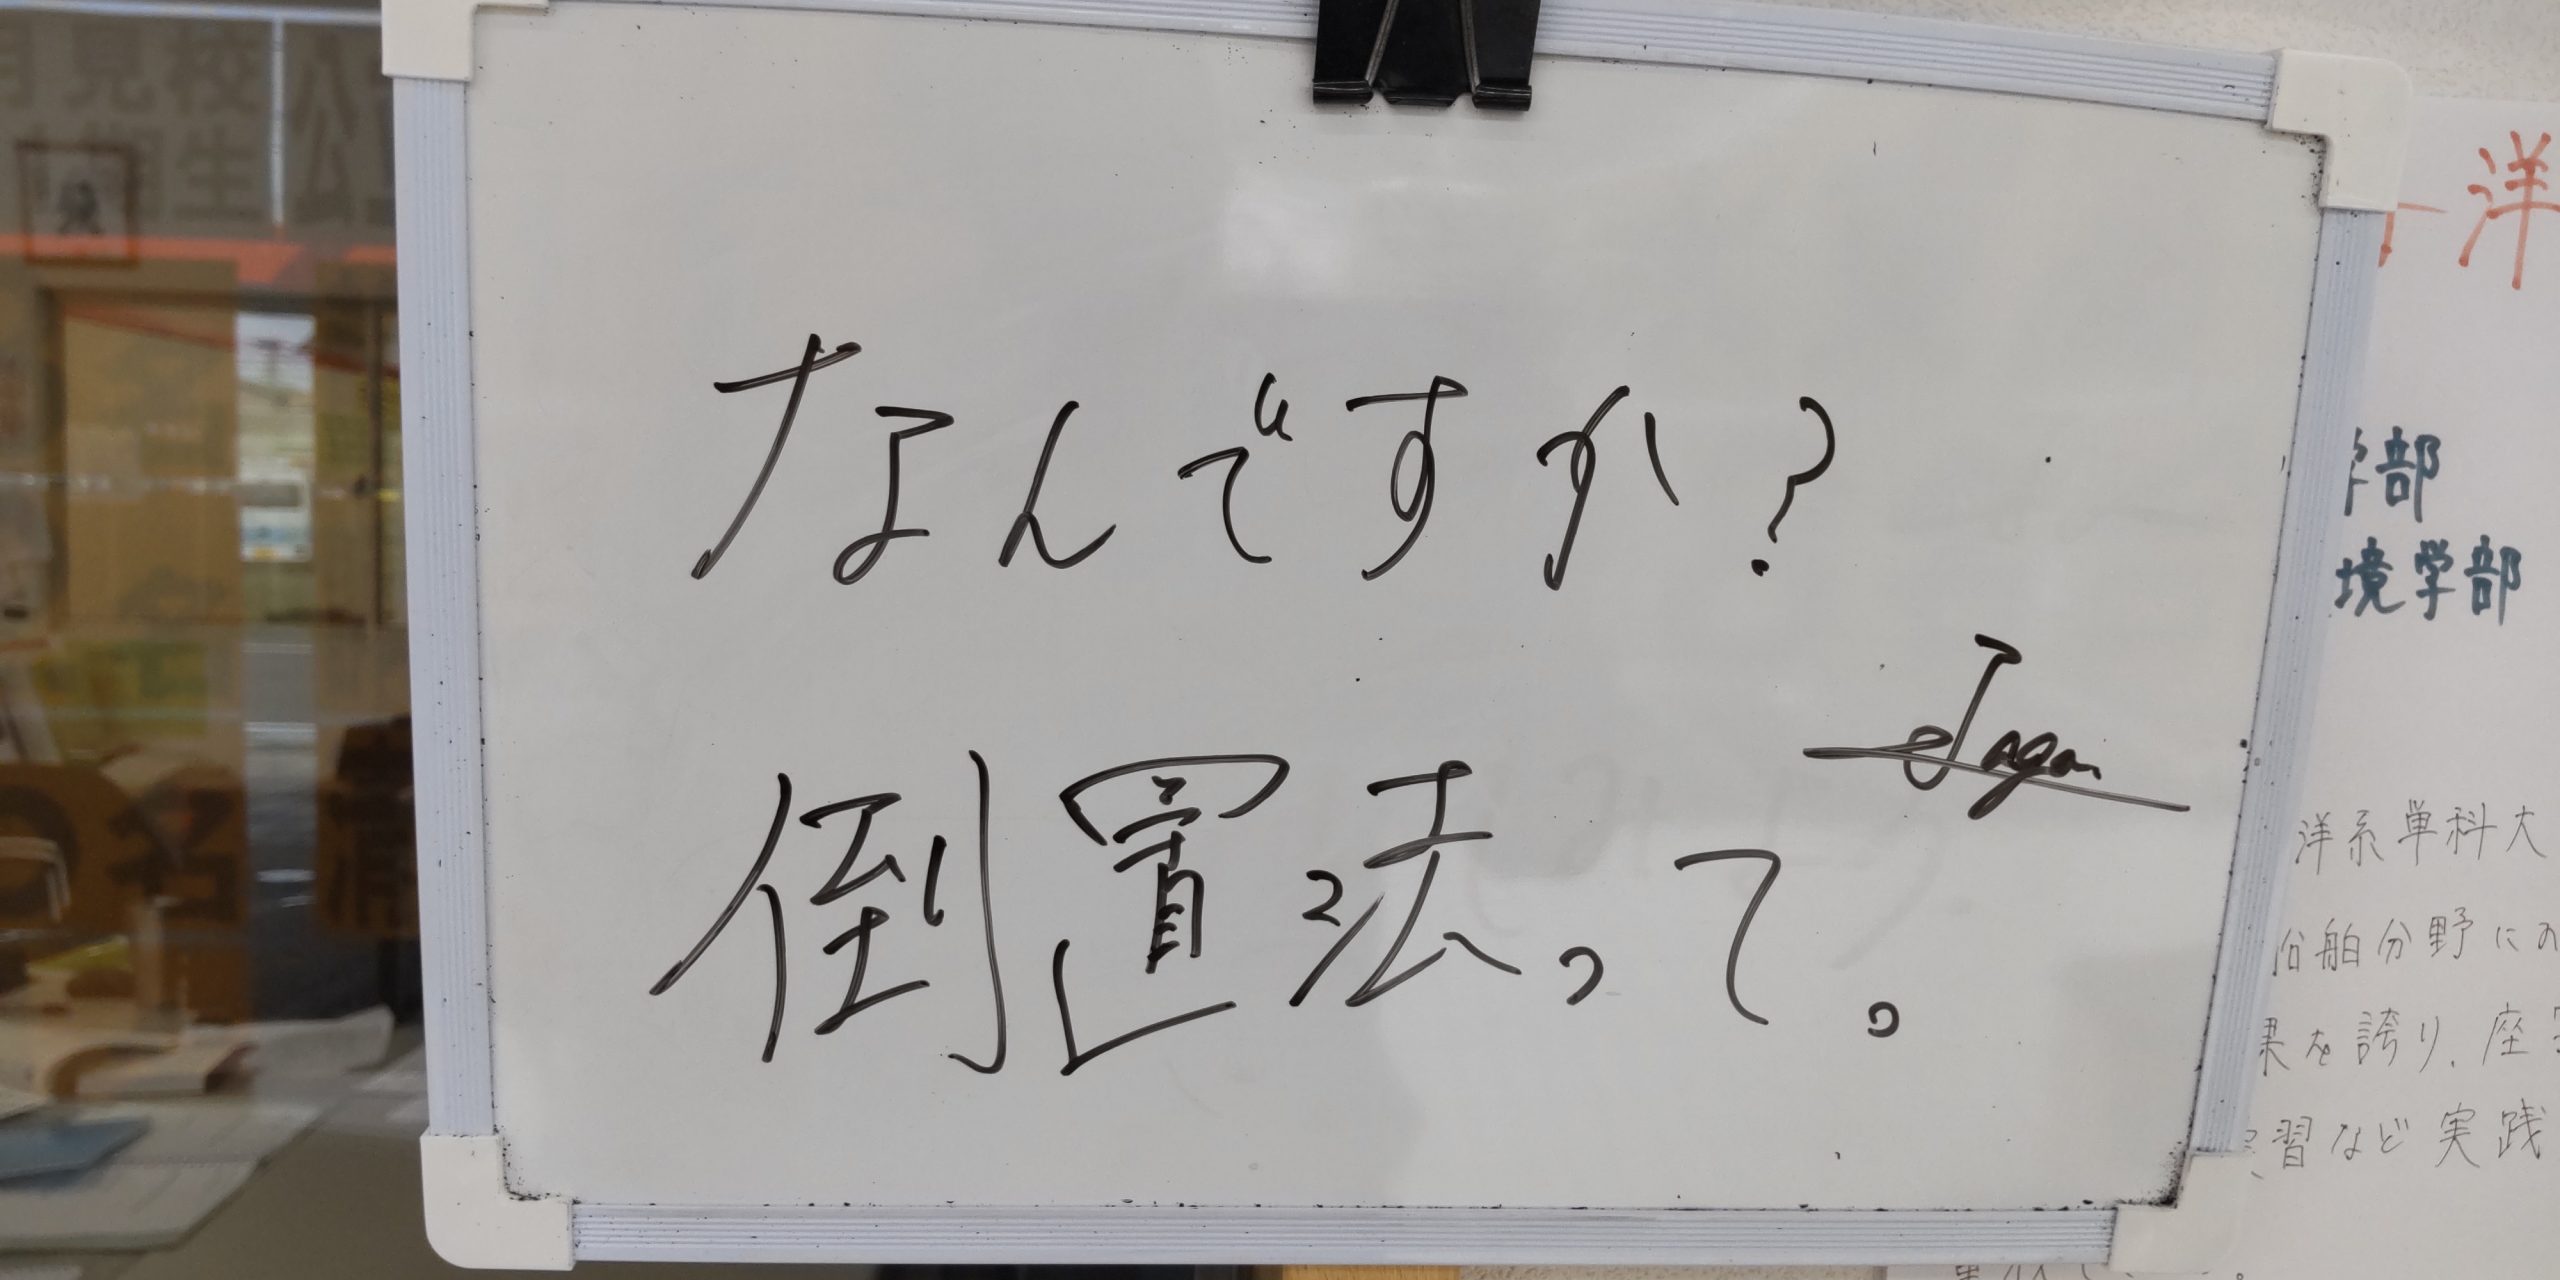 なんですか?
Jagan
倒置法って。
洋
学部
境学部
洋系単科大
船舶分野にお
果を誇り、座学
実習など実践